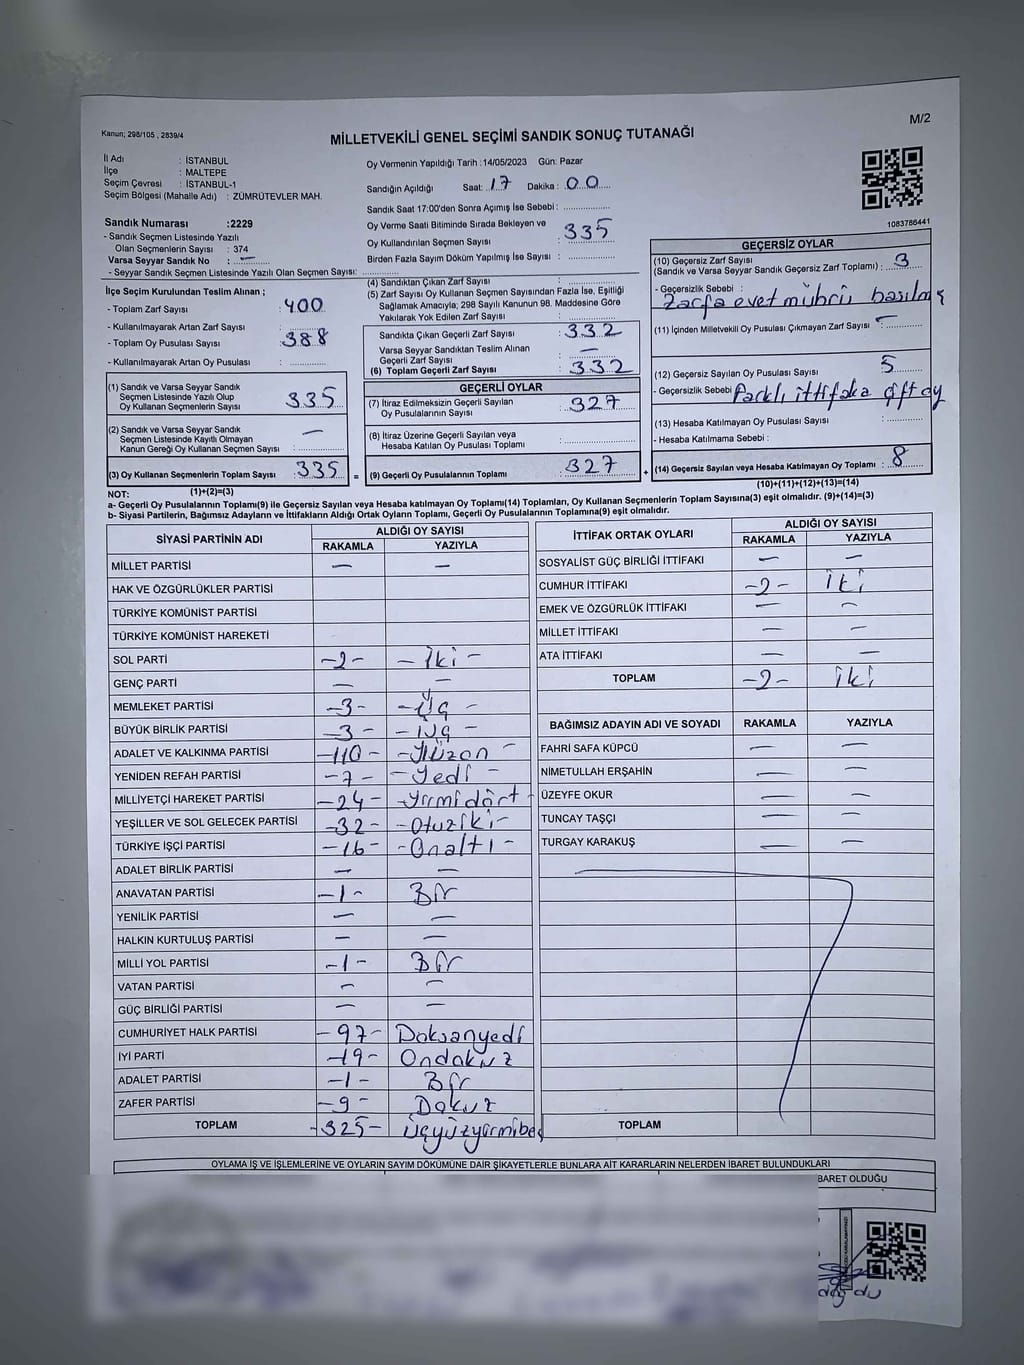 M/2
Kanun; 298/105 , 2839/4
MİLLETVEKİLİ GENEL SEÇİMİ SANDIK SONUÇ TUTANAĞI
İl Adı : İSTANBUL
İlçe : MALTEPE
Seçim Çevresi : İSTANBUL-1
Seçim Bölgesi (Mahalle Adı) : ZÜMRÜTEVLER MAH.
Sandık Numarası :2229
- Sandık Seçmen Listesinde Yazılı
Olan Seçmenlerin Sayısı : 374
Varsa Seyyar Sandık No : —
- Seyyar Sandık Seçmen Listesinde Yazılı Olan Seçmen Sayısı:
İlçe Seçim Kurulundan Teslim Alınan ;
- Toplam Zarf Sayısı : 400
- Kullanılmayarak Artan Zarf Sayısı :
- Toplam Oy Pusulası Sayısı : 388
- Kullanılmayarak Artan Oy Pusulası :
(1) Sandık ve Varsa Seyyar Sandık
Seçmen Listesinde Yazılı Olup
Oy Kullanan Seçmenlerin Sayısı : 335
(2) Sandık ve Varsa Seyyar Sandık
Seçmen Listesinde Kayıtlı Olmayan
Kanun Gereği Oy Kullanan Seçmen Sayısı : —
(3) Oy Kullanan Seçmenlerin Toplam Sayısı : 335 =
(1)+(2)=(3)
Oy Vermenin Yapıldığı Tarih :14/05/2023 Gün: Pazar
Sandığın Açıldığı Saat: 17 Dakika : 00
Sandık Saat 17:00'den Sonra Açımış İse Sebebi :
Oy Verme Saati Bitiminde Sırada Bekleyen ve
Oy Kullandırılan Seçmen Sayısı : 335
Birden Fazla Sayım Döküm Yapılmış İse Sayısı :
(4) Sandıktan Çıkan Zarf Sayısı :
(5) Zarf Sayısı Oy Kullanan Seçmen Sayısından Fazla İse, Eşitliği
Sağlamak Amacıyla; 298 Sayılı Kanunun 98. Maddesine Göre
Yakılarak Yok Edilen Zarf Sayısı :
Sandıkta Çıkan Geçerli Zarf Sayısı : 332
Varsa Seyyar Sandıktan Teslim Alınan
Geçerli Zarf Sayısı : —
(6) Toplam Geçerli Zarf Sayısı : 332
GEÇERLİ OYLAR
(7) İtiraz Edilmeksizin Geçerli Sayılan
Oy Pusulalarının Sayısı : 327
(8) İtiraz Üzerine Geçerli Sayılan veya
Hesaba Katılan Oy Pusulası Toplamı :
(9) Geçerli Oy Pusulalarının Toplamı : 327 +
1083786441
GEÇERSİZ OYLAR
(10) Geçersiz Zarf Sayısı
(Sandık ve Varsa Seyyar Sandık Geçersiz Zarf Toplamı) : 3
- Geçersizlik Sebebi :
Zarfa evet mührü basılmış
(11) İçinden Milletvekili Oy Pusulası Çıkmayan Zarf Sayısı : —
(12) Geçersiz Sayılan Oy Pusulası Sayısı : 5
- Geçersizlik Sebebi Farklı ittifaka çift oy
(13) Hesaba Katılmayan Oy Pusulası Sayısı :
- Hesaba Katılmama Sebebi :
(14) Geçersiz Sayılan veya Hesaba Katılmayan Oy Toplamı : 8
(10)+(11)+(12)+(13)=(14)
NOT:
a- Geçerli Oy Pusulalarının Toplamı(9) ile Geçersiz Sayılan veya Hesaba katılmayan Oy Toplamı(14) Toplamları, Oy Kullanan Seçmenlerin Toplam Sayısına(3) eşit olmalıdır. (9)+(14)=(3)
b- Siyasi Partilerin, Bağımsız Adayların ve İttifakların Aldığı Ortak Oyların Toplamı, Geçerli Oy Pusulalarının Toplamına(9) eşit olmalıdır.
SİYASİ PARTİNİN ADI ALDIĞI OY SAYISI
RAKAMLA YAZIYLA
MİLLET PARTİSİ — —
HAK VE ÖZGÜRLÜKLER PARTİSİ
TÜRKİYE KOMÜNİST PARTİSİ
TÜRKİYE KOMÜNİST HAREKETİ
SOL PARTİ -2- - İki -
GENÇ PARTİ — —
MEMLEKET PARTİSİ -3- - Üç -
BÜYÜK BİRLİK PARTİSİ -3- - Üç -
ADALET VE KALKINMA PARTİSİ -110- - Yüzon -
YENİDEN REFAH PARTİSİ -7- - Yedi -
MİLLİYETÇİ HAREKET PARTİSİ -24- - Yirmidört -
YEŞİLLER VE SOL GELECEK PARTİSİ -32- - Otuziki -
TÜRKİYE İŞÇİ PARTİSİ -16- - Onaltı -
ADALET BİRLİK PARTİSİ — —
ANAVATAN PARTİSİ -1- Bir
YENİLİK PARTİSİ — —
HALKIN KURTULUŞ PARTİSİ — —
MİLLİ YOL PARTİSİ -1- Bir
VATAN PARTİSİ — —
GÜÇ BİRLİĞİ PARTİSİ — —
CUMHURİYET HALK PARTİSİ -97- Doksanyedi
İYİ PARTİ -19- Ondokuz
ADALET PARTİSİ -1- Bir
ZAFER PARTİSİ -9- Dokuz
TOPLAM -325- üçyüzyirmibeş
İTTİFAK ORTAK OYLARI ALDIĞI OY SAYISI
RAKAMLA YAZIYLA
SOSYALİST GÜÇ BİRLİĞİ İTTİFAKI — —
CUMHUR İTTİFAKI -2- İki
EMEK VE ÖZGÜRLÜK İTTİFAKI — —
MİLLET İTTİFAKI — —
ATA İTTİFAKI — —
TOPLAM -2- İki
BAĞIMSIZ ADAYIN ADI VE SOYADI RAKAMLA YAZIYLA
FAHRİ SAFA KÜPCÜ — —
NİMETULLAH ERŞAHİN — —
ÜZEYFE OKUR — —
TUNCAY TAŞÇI — —
TURGAY KARAKUŞ — —
TOPLAM
OYLAMA İŞ VE İŞLEMLERİNE VE OYLARIN SAYIM DÖKÜMÜNE DAİR ŞİKAYETLERLE BUNLARA AİT KARARLARIN NELERDEN İBARET BULUNDUKLARI
BARET OLDUĞU